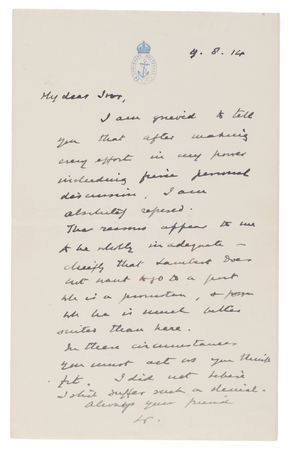 4. 8. 14
My dear Ivor,
I am grieved to tell
you that after making
every effort in my power
including fierce personal
discussion, I am
absolutely refused.
The reasons appear to me
to be wholly inadequate –
chiefly that Lambert does
not want to go to a post
wh is a promotion, & from
wh he is much better
suited than here.
In these circumstances
you must act as you think
fit. I did not believe
I shd suffer such a denial.
Always your friend